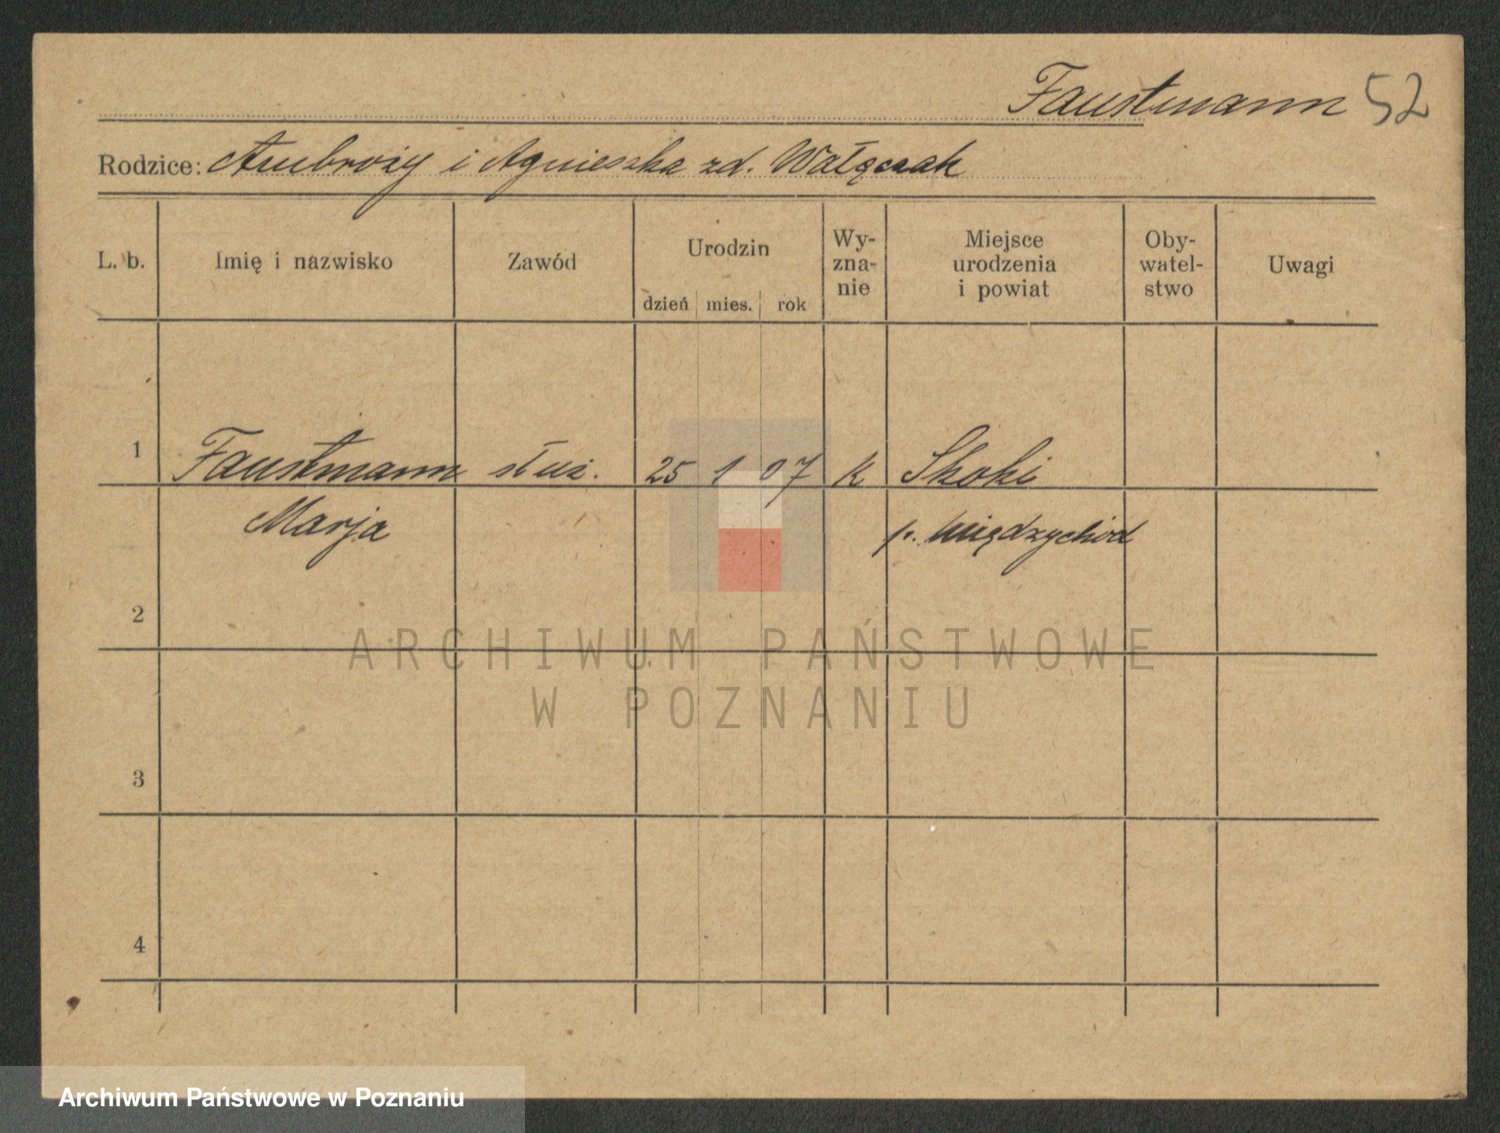 Faustmann 52
Rodzice: Ambroży i Agnieszka zd. Wałęczak
L. b. Imię i nazwisko Zawód Urodzin dzień mies. rok Wy-zna-nie Miejsce urodzenia i powiat Oby-watel-stwo Uwagi
1 Faustmann służ. 25 1 07 k Skoki
Marja p. Międzychód
2
ARCHIWUM PAŃSTWOWE
W POZNANIU
3
4
Archiwum Państwowe w Poznaniu